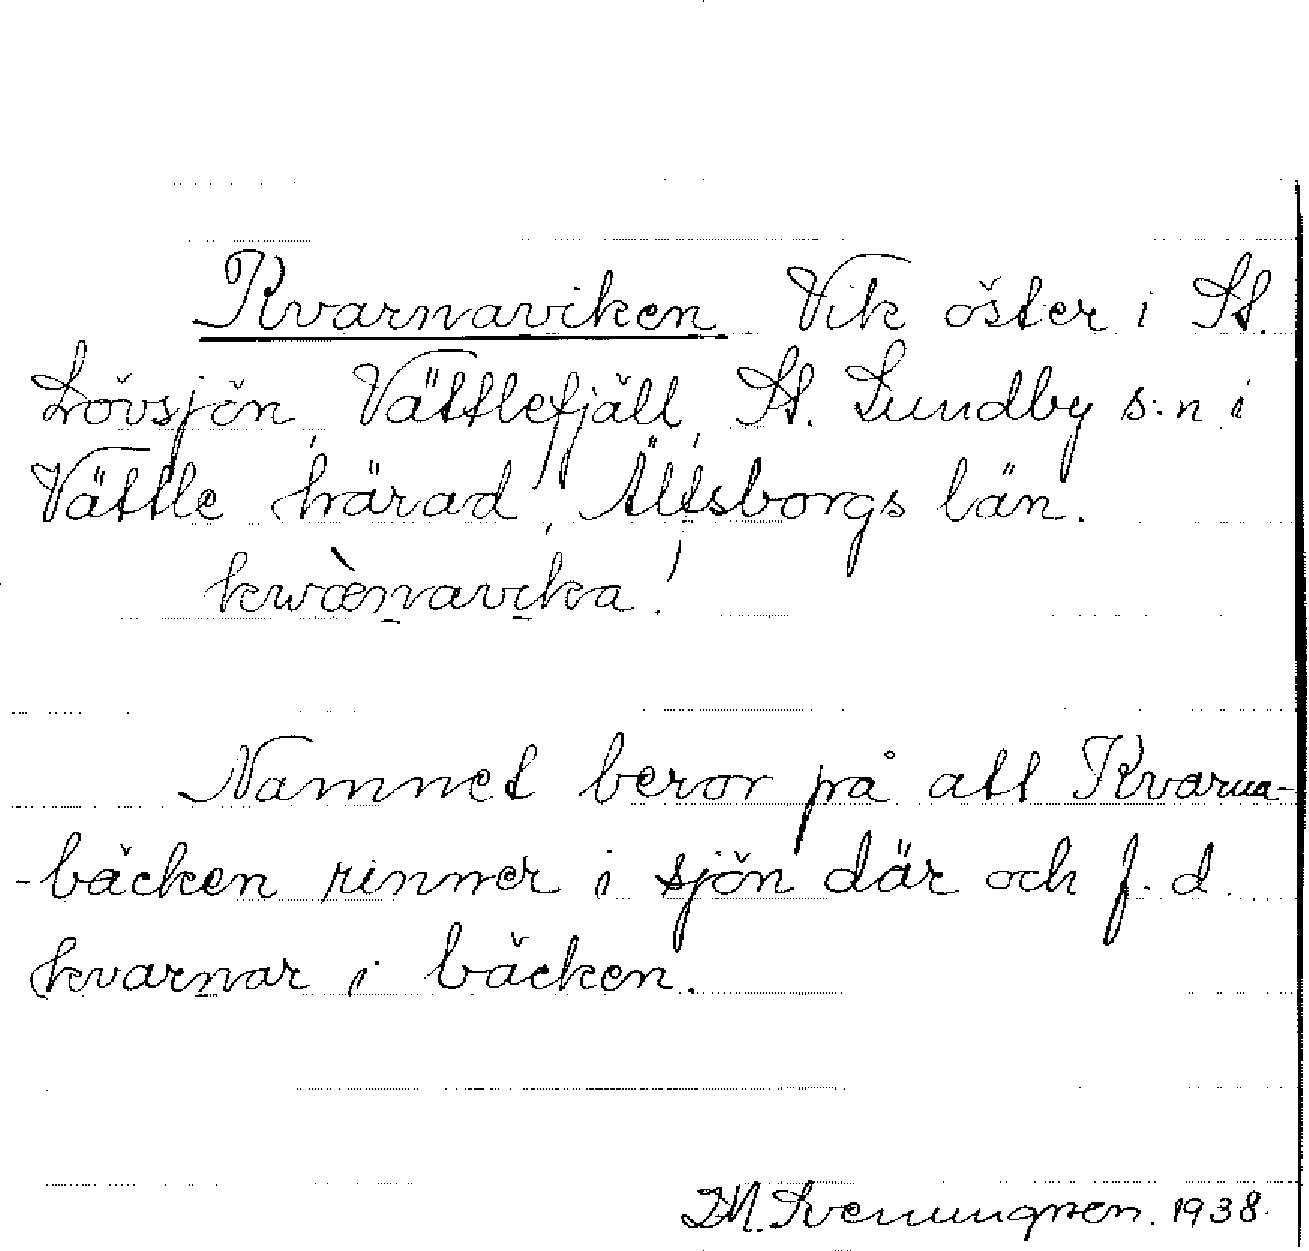 Kvarnaviken Vik öster i St.
Lövsjön, Vättlefjäll, St. Lundby s:n i
Vättle härad, Älvsborgs län.
kwæ̀ṇavika!
Namnet beror på att Kvarna-
-bäcken rinner i sjön där och f. d.
kvarnar i bäcken.
1938.